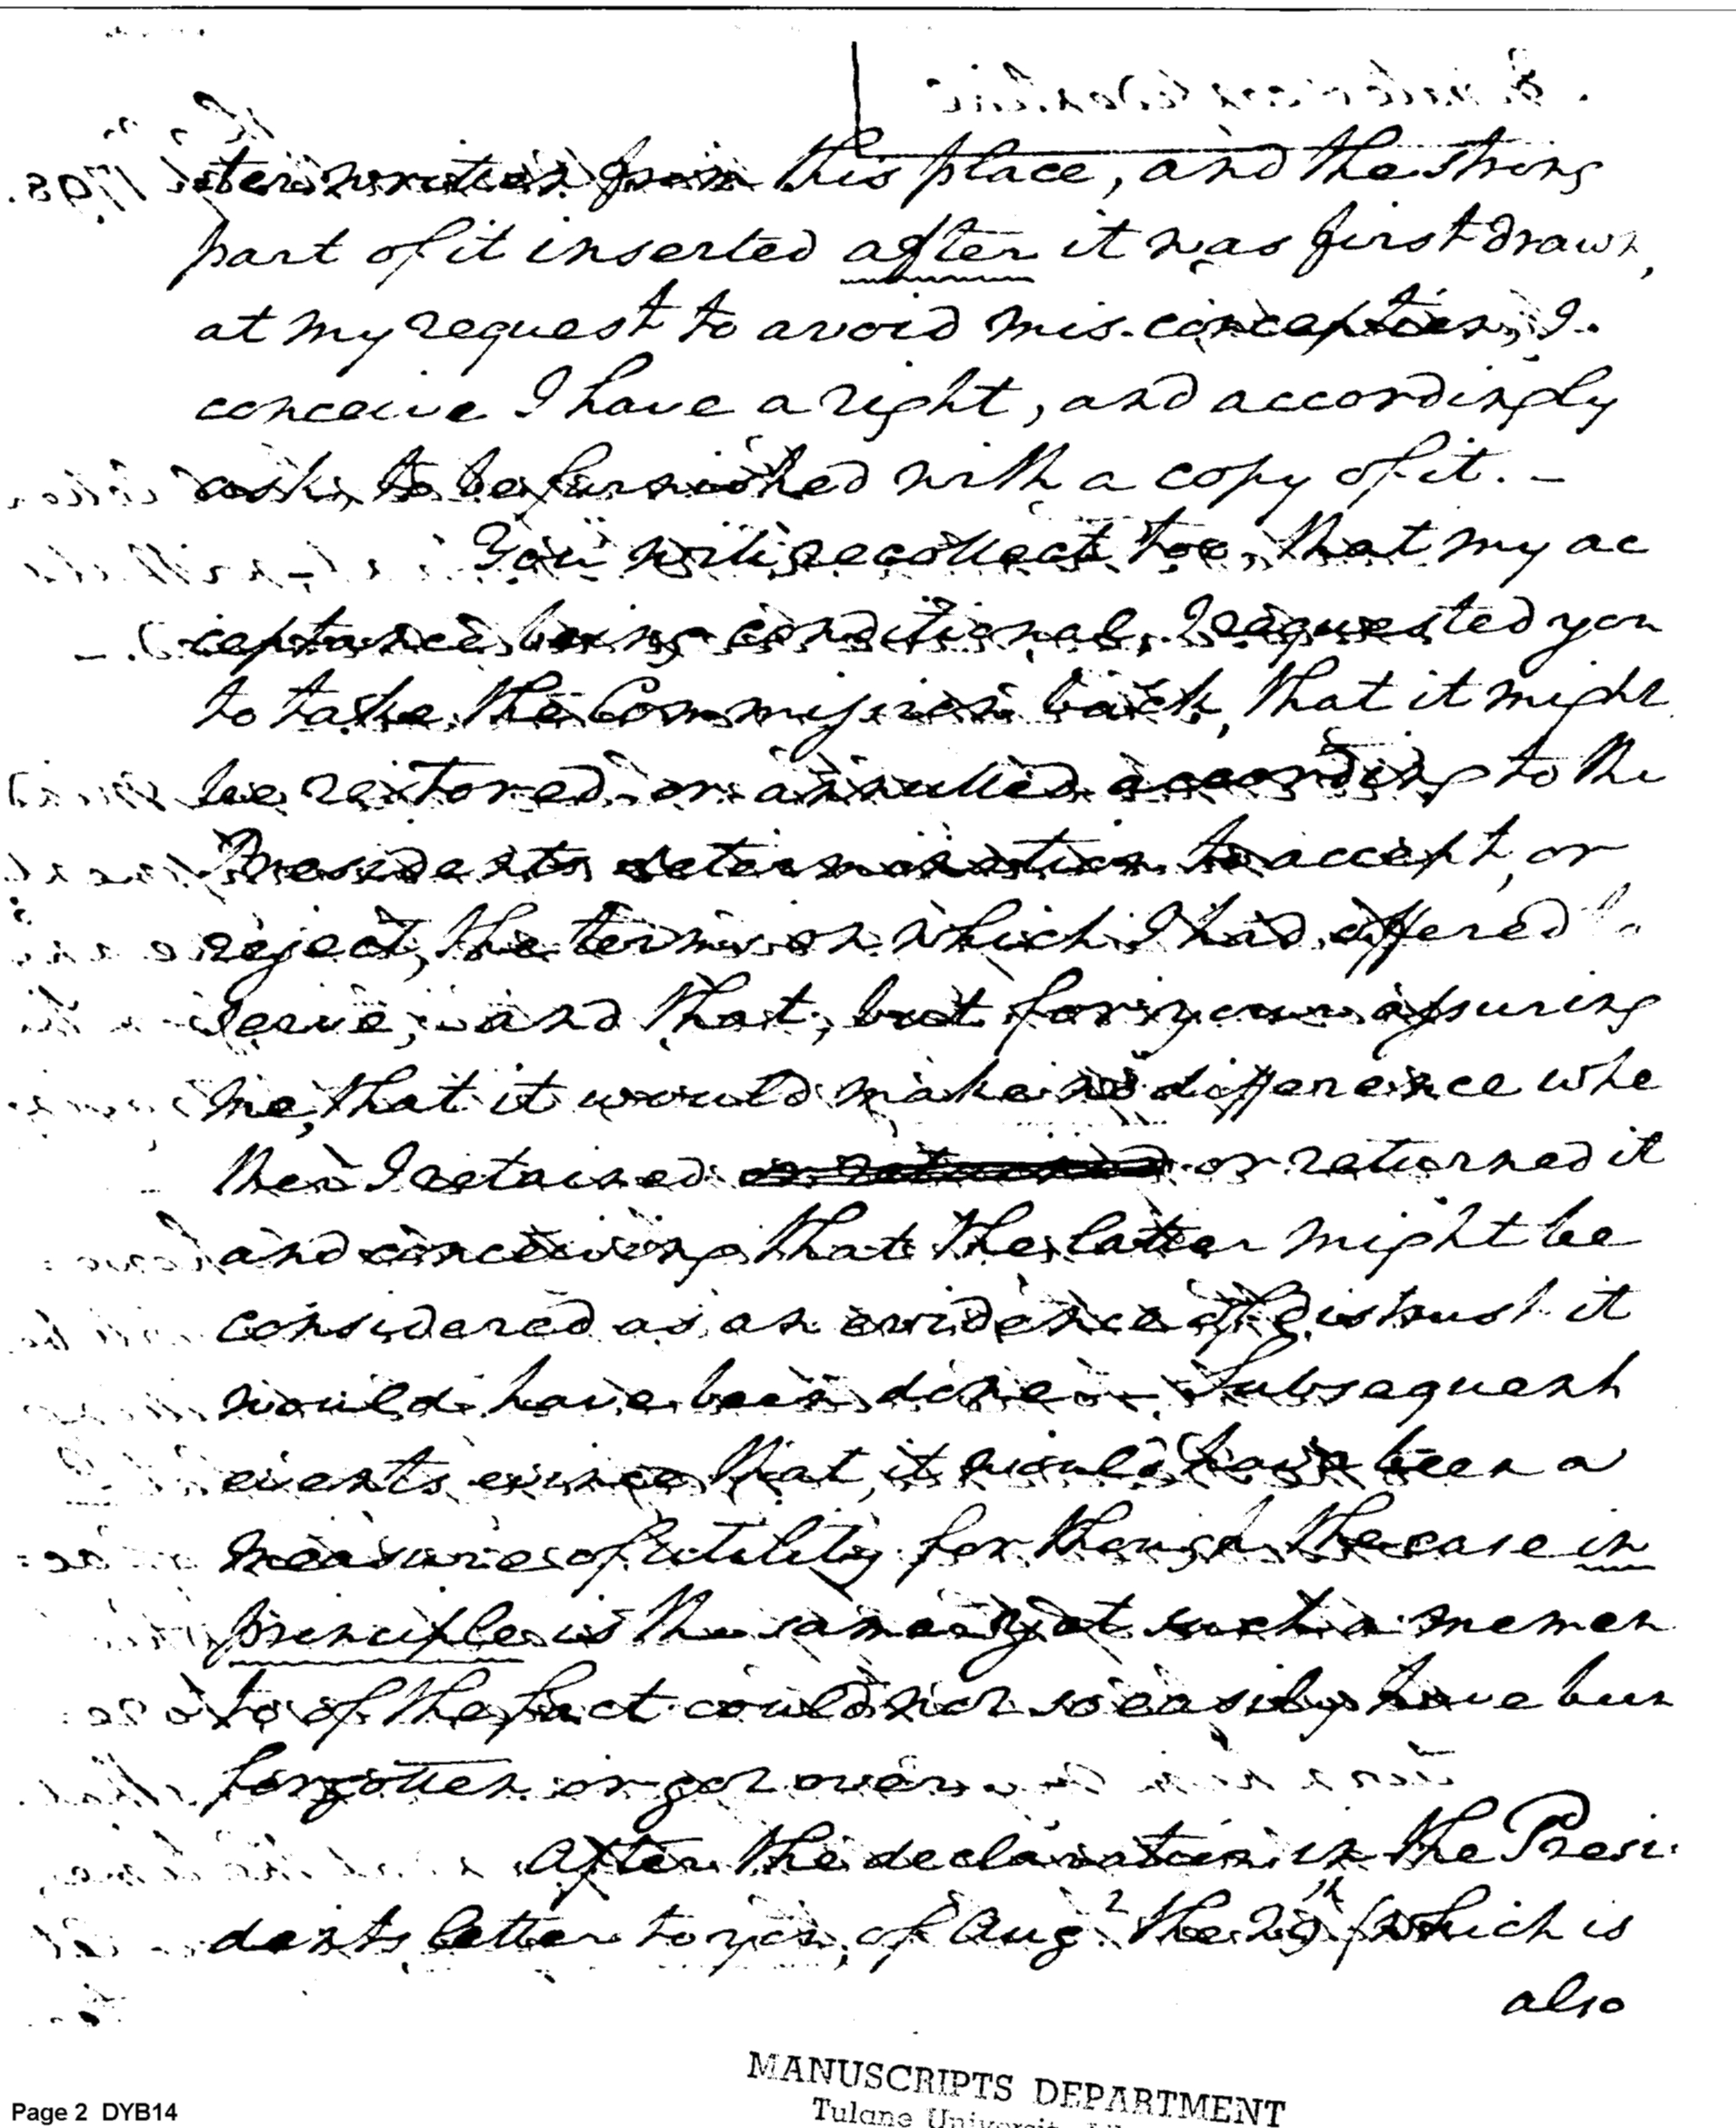 ter written from this place, and the strong
part of it inserted after it was first drawn,
at my request to avoid mis-conception, I
conceive I have a right, and accordingly
ask, to be furnished with a copy of it. –
You will recollect too, that my ac
ceptance being conditional, I requested you
to take the Commission back, that it might
be restored or annulled according to the
Presidents determination to accept, or
reject, the terms on which I had offered to
serve; and that, but for your assuring
me, that it would make no difference whe
ther I retained or returned or returned it
and conceiving that the latter might be
considered as an evidence of distrust it
would have been done – Subsequent
events evince that, it would have been a
measure of utility for though the case in
principle is the same, yet such a memen
to of the fact could not so easily have been
forgotten or got over
After the declaration in the Presi
dents letter to you, of Augt the 29th (which is
also
1798.
MANUSCRIPTS DEPARTMENT
Tulane University
Page 2 DYB14